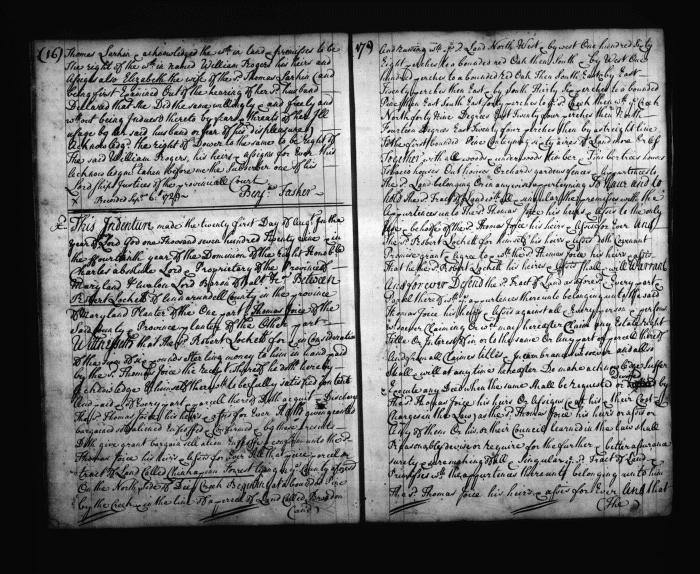 (16)
Thomas Larkin acknowledged the wth in land & premises to be
The right of the wth in named William Rogers his heirs and
Assigns also Elizabeth the wife of the sd Thomas Larkin (and
being first Examined Out of the hearing of her sd husband
Declared that she Did the same willingly & and freely and
without being Induced thereto by fears or threats of her Ill
usage by her said husband or fear of his displeasure)
Acknowledg the right of Dower to the same to be right of
The said William Rogers, his heirs & assigns for Ever This
Acknowledgmt taken before me the Subscriber one of his
Lordships Justices of the provincial Court
Recorded Sepr 6. 1729 Benja Tasker
This Indenture made the twenty first Day of Augt In the
year of Lord God one Thousand seven hundred Twenty nine & in
the fourteenth year of the Dominion of the Right Honoble
Charles absolute Lord & Proprietary of the Provinces of
Maryland & Avalon Lord Baron of Baltre &c Between
Robert Lockett of Annarundell County in the province
of Maryland Planter of the One part & Thomas Joice of the
Said County & Province planter of the Other part
Witnesseth that the sd Robert Lockett for & in Consideration
of the sum of Six pounds sterling money to him in hand paid
by the sd Thomas Joice the receipt whereof he doth hereby
Acknowledge & himself therewith to be fully satisfied content
And paid & of Every part & parcell thereof Doth acquit & Discharg
the sd Thomas Joice his heirs & assigns for Ever Hath given granted
bargained sold aliened Infeoffed & Confirmed & by these presents
Doth give grant bargain sell alien Infeoff & confirm unto the sd
Thomas Joice his heirs & assigns for Ever All that piece parcell or
tract of Land Called Forrest Lying in ye County aforesd
On the North Side of Deep Creek Beginning at a bounded Pine
by the Creek & in the line of a parcell of Land Called Brandon
(and)
179
And running wth sd Land North West & by west One hundred Sixty
Eight perches to a bounded red Oak then South & by West One
hundred perches to a bounded Red Oak Then South East & by East
Twenty perches then East & by South Thirty Six perches to a bounded
Pine then East South East forty perches to ye sd Creek then wth ye Creek
North forty Nine Degrees East Twenty four perches then North
Fourteen Degrees East Twenty four perches then by a streight line
to the first bounded Pine Containing Sixty acres of Land more Or less
Together with all woods & underwoods timber & Timber trees houses
Tobacco houses Out houses Orchards gardens fences & appurtences to
The sd Land belonging Or in any wise appertaining To Have and to
hold the sd Tract of Land & all & singular the premises with the
Appurtences unto the sd Thomas Joice his heirs & assigns to the only
use & behoofe of the sd Thomas Joice his heirs & assigns for Ever And
The sd Robert Lockett for himself his heirs & assigns doth Covenant
Promise grant & agree to & wth the sd Thomas Joice his heirs & assigns
That he the sd Robert Lockett his heirs & assigns shall & will Warrant
And for ever Defend the sd Tract of Land as aforesd & Every part &
Parcell thereof wth ye appurtences thereunto belonging unto the said
Thomas Joice his heirs & assigns against all & every person & persons
whatsoever Claiming Or wch may hereafter Claim any Estate right
Title Or Interest of in or to the same Or any part or parcell thereof
And from all Claimes titles & Incumbrances whatsoever and also
Shall & will at any time hereafter Do make acknowledge suffer
& execute any Deed when the same Shall be requested or required by
The sd Thomas Joice his heirs Or Assigns (att his & their Cost &
Charges in the Law) as the sd Thomas Joice his heirs or assigns or
Any of them Or his or their Councel learned in the Law shall
Reasonably devise or require for the further & better assurance
surety & suremaking of all & Singular ye sd Tract of Land &
Premisses wth the appurtences thereunto belonging unto him
The sd Thomas Joice his heirs & assigns for Ever And that
(The